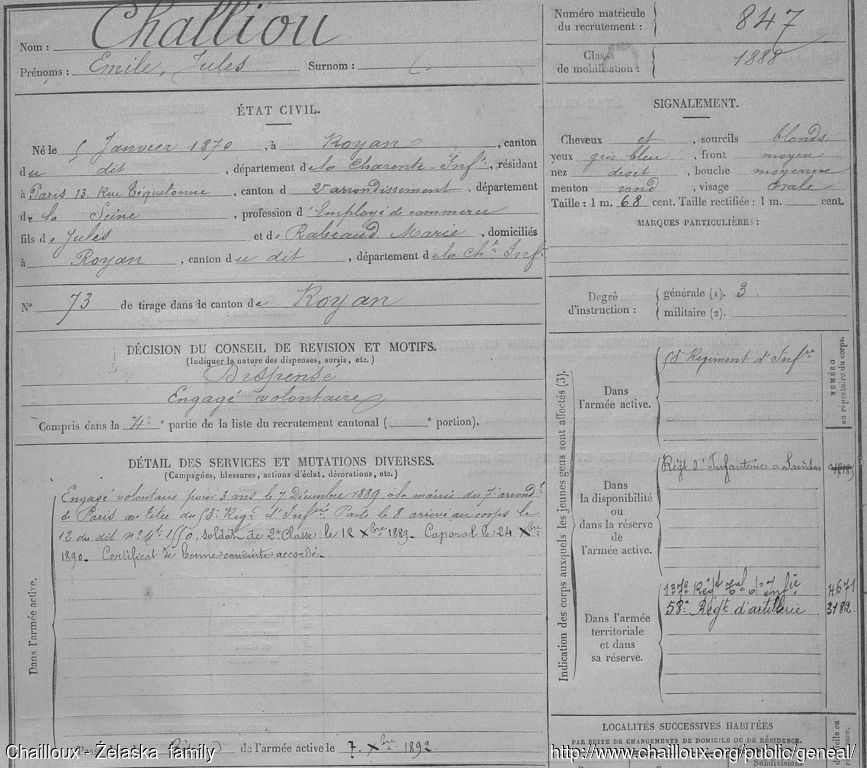 Nom : Challiou
Prénoms : Emile, Jules Surnom :
ÉTAT CIVIL.
Né le 5 Janvier 1870, à Royan, canton
du dit, département de la Charente Infre, résidant
à Paris 13 Rue Tiquetonne, canton d 2e arrondissement, département
de la Seine, profession d'Employé de commerce
fils de Jules et de Rabeaud Marie, domiciliés
à Royan, canton du dit, département de la Chte Infre
N° 73 de tirage dans le canton de Royan
DÉCISION DU CONSEIL DE REVISION ET MOTIFS.
(Indiquer la nature des dispenses, sursis, etc.)
Dispensé
Engagé volontaire
Compris dans la 4e partie de la liste du recrutement cantonal ( e portion).
DÉTAIL DES SERVICES ET MUTATIONS DIVERSES.
(Campagnes, blessures, actions d'éclat, décorations, etc.)
Dans l'armée active.
Engagé volontaire pour 3 ans le 7 Décembre 1889 à la mairie du 7e arrondt
de Paris au titre du Régt d'Infrie Parti le 8 arrivé au corps le
12 du dit n° Mle 1550, soldat de 2e Classe le 12 Xbre 1889. Caporal le 24 Xbre
1890. Certificat de bonne conduite accordé.
de l'armée active le 7 Xbre 1892
Numéro matricule du recrutement : 847
Classe de mobilisation : 1888
SIGNALEMENT.
Cheveux et, sourcils blonds
yeux gris bleu, front moyen
nez droit, bouche moyenne
menton rond, visage ovale
Taille : 1 m. 68 cent. Taille rectifiée : 1 m. cent.
MARQUES PARTICULIÈRES :
Degré d'instruction : générale (1). 3
militaire (2).
Indication des corps auxquels les jeunes gens sont affectés (3).
NUMÉRO au répertoire du corps.
Dans l'armée active.
Régiment d'Infrie
Dans la disponibilité ou dans la réserve de l'armée active.
Régt d'Infanterie à Saintes
Dans l'armée territoriale et dans sa réserve.
137e Régt Tal d'Infie 4671
58e Régt d'artillerie 3182
LOCALITÉS SUCCESSIVES HABITÉES
PAR SUITE DE CHANGEMENTS DE DOMICILE OU DE RÉSIDENCE.
Subdivisions
Chailloux - Żelaska family
http://www.chailloux.org/public/geneal/